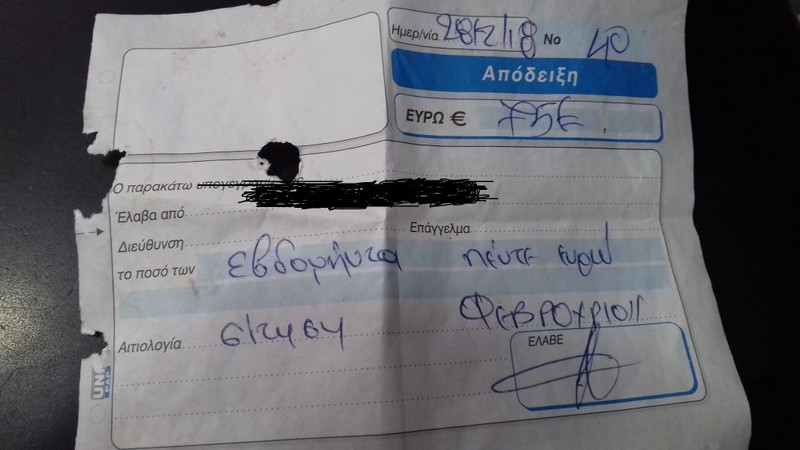 Ημερ/νία 28/2/18 No 40
Απόδειξη
ΕΥΡΩ € 75€
Ο παρακάτω
Έλαβα από
Διεύθυνση Επάγγελμα
το ποσό των εβδομήντα πέντε ευρώ
ΦΕΒΡΟΥΑΡΙΟΥ
Αιτιολογία σίτιση
ΕΛΑΒΕ
UNI PAP